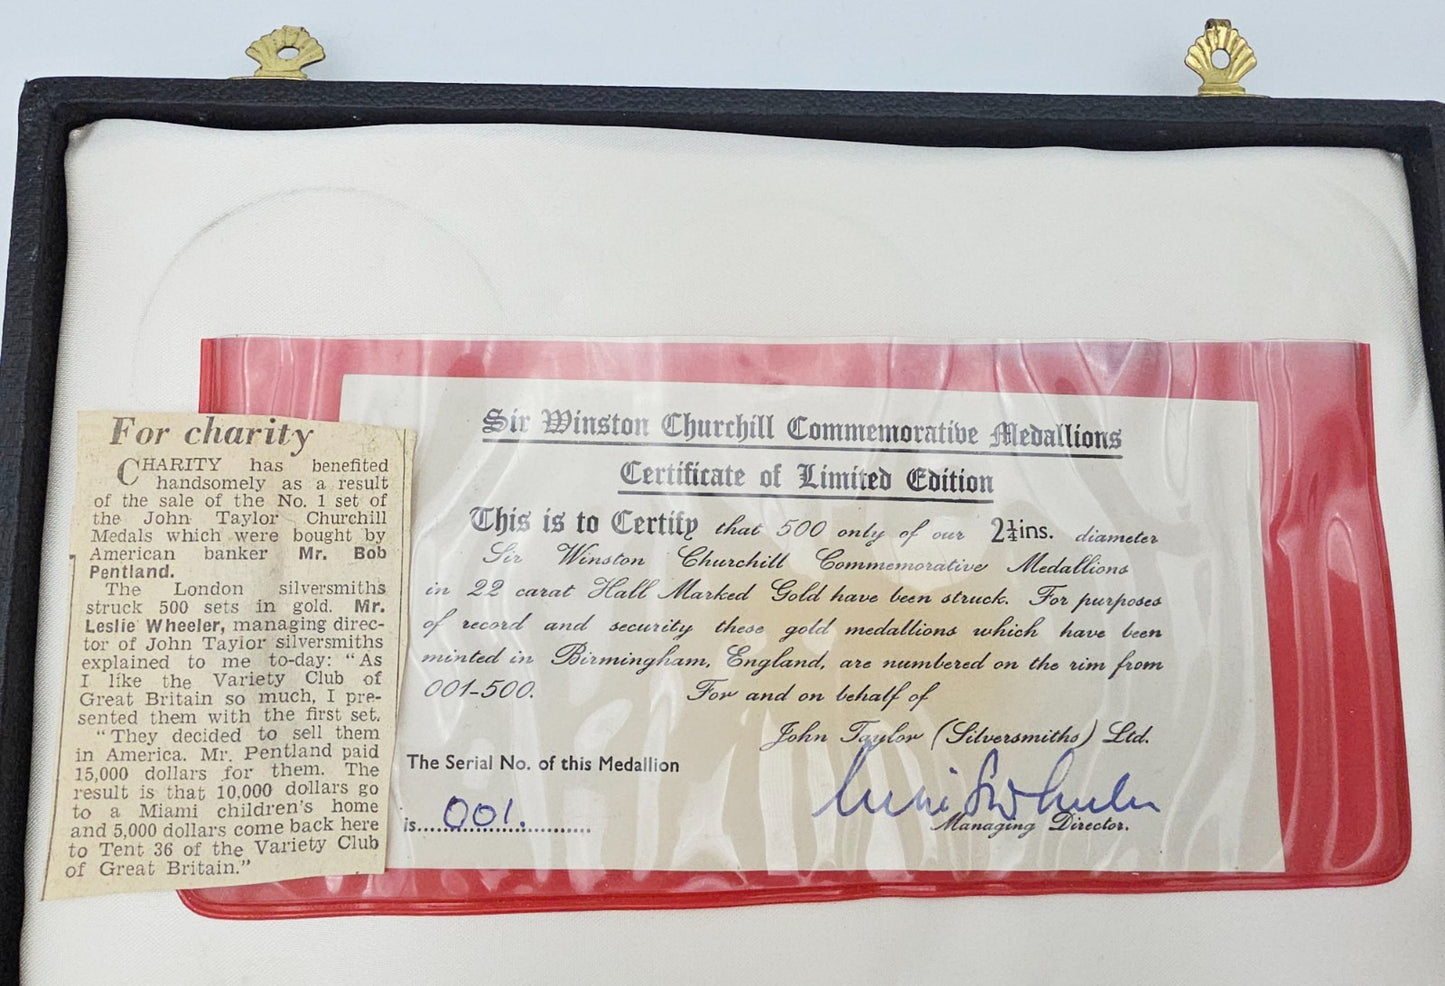 For charity
CHARITY has benefited
handsomely as a result
of the sale of the No. 1 set of
the John Taylor Churchill
Medals which were bought by
American banker Mr. Bob
Pentland.
The London silversmiths
struck 500 sets in gold. Mr.
Leslie Wheeler, managing direc-
tor of John Taylor silversmiths
explained to me to-day: "As
I like the Variety Club of
Great Britain so much, I pre-
sented them with the first set.
"They decided to sell them
in America. Mr. Pentland paid
15,000 dollars for them. The
result is that 10,000 dollars go
to a Miami children's home
and 5,000 dollars come back here
to Tent 36 of the Variety Club
of Great Britain."
Sir Winston Churchill Commemorative Medallions
Certificate of Limited Edition
This is to Certify that 500 only of our 2¼ins. diameter
Sir Winston Churchill Commemorative Medallions
in 22 carat Hall Marked Gold have been struck. For purposes
of record and security these gold medallions which have been
minted in Birmingham, England, are numbered on the rim from
001-500. For and on behalf of
John Taylor (Silversmiths) Ltd.
The Serial No. of this Medallion
is....001.............
Managing Director.